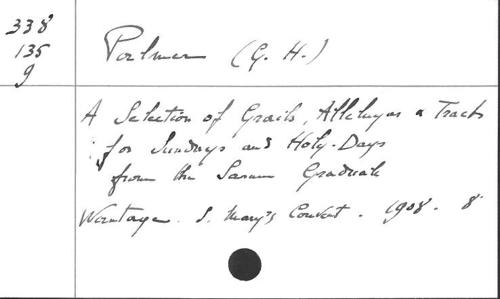 338
135
9
Palmer (G. H.)
A Selection of Grails, Alleluyas & Tracts
for Sundays and Holy-Days
from the Sarum Graduale
Wantage. S. Mary's Convent. 1908. 8°